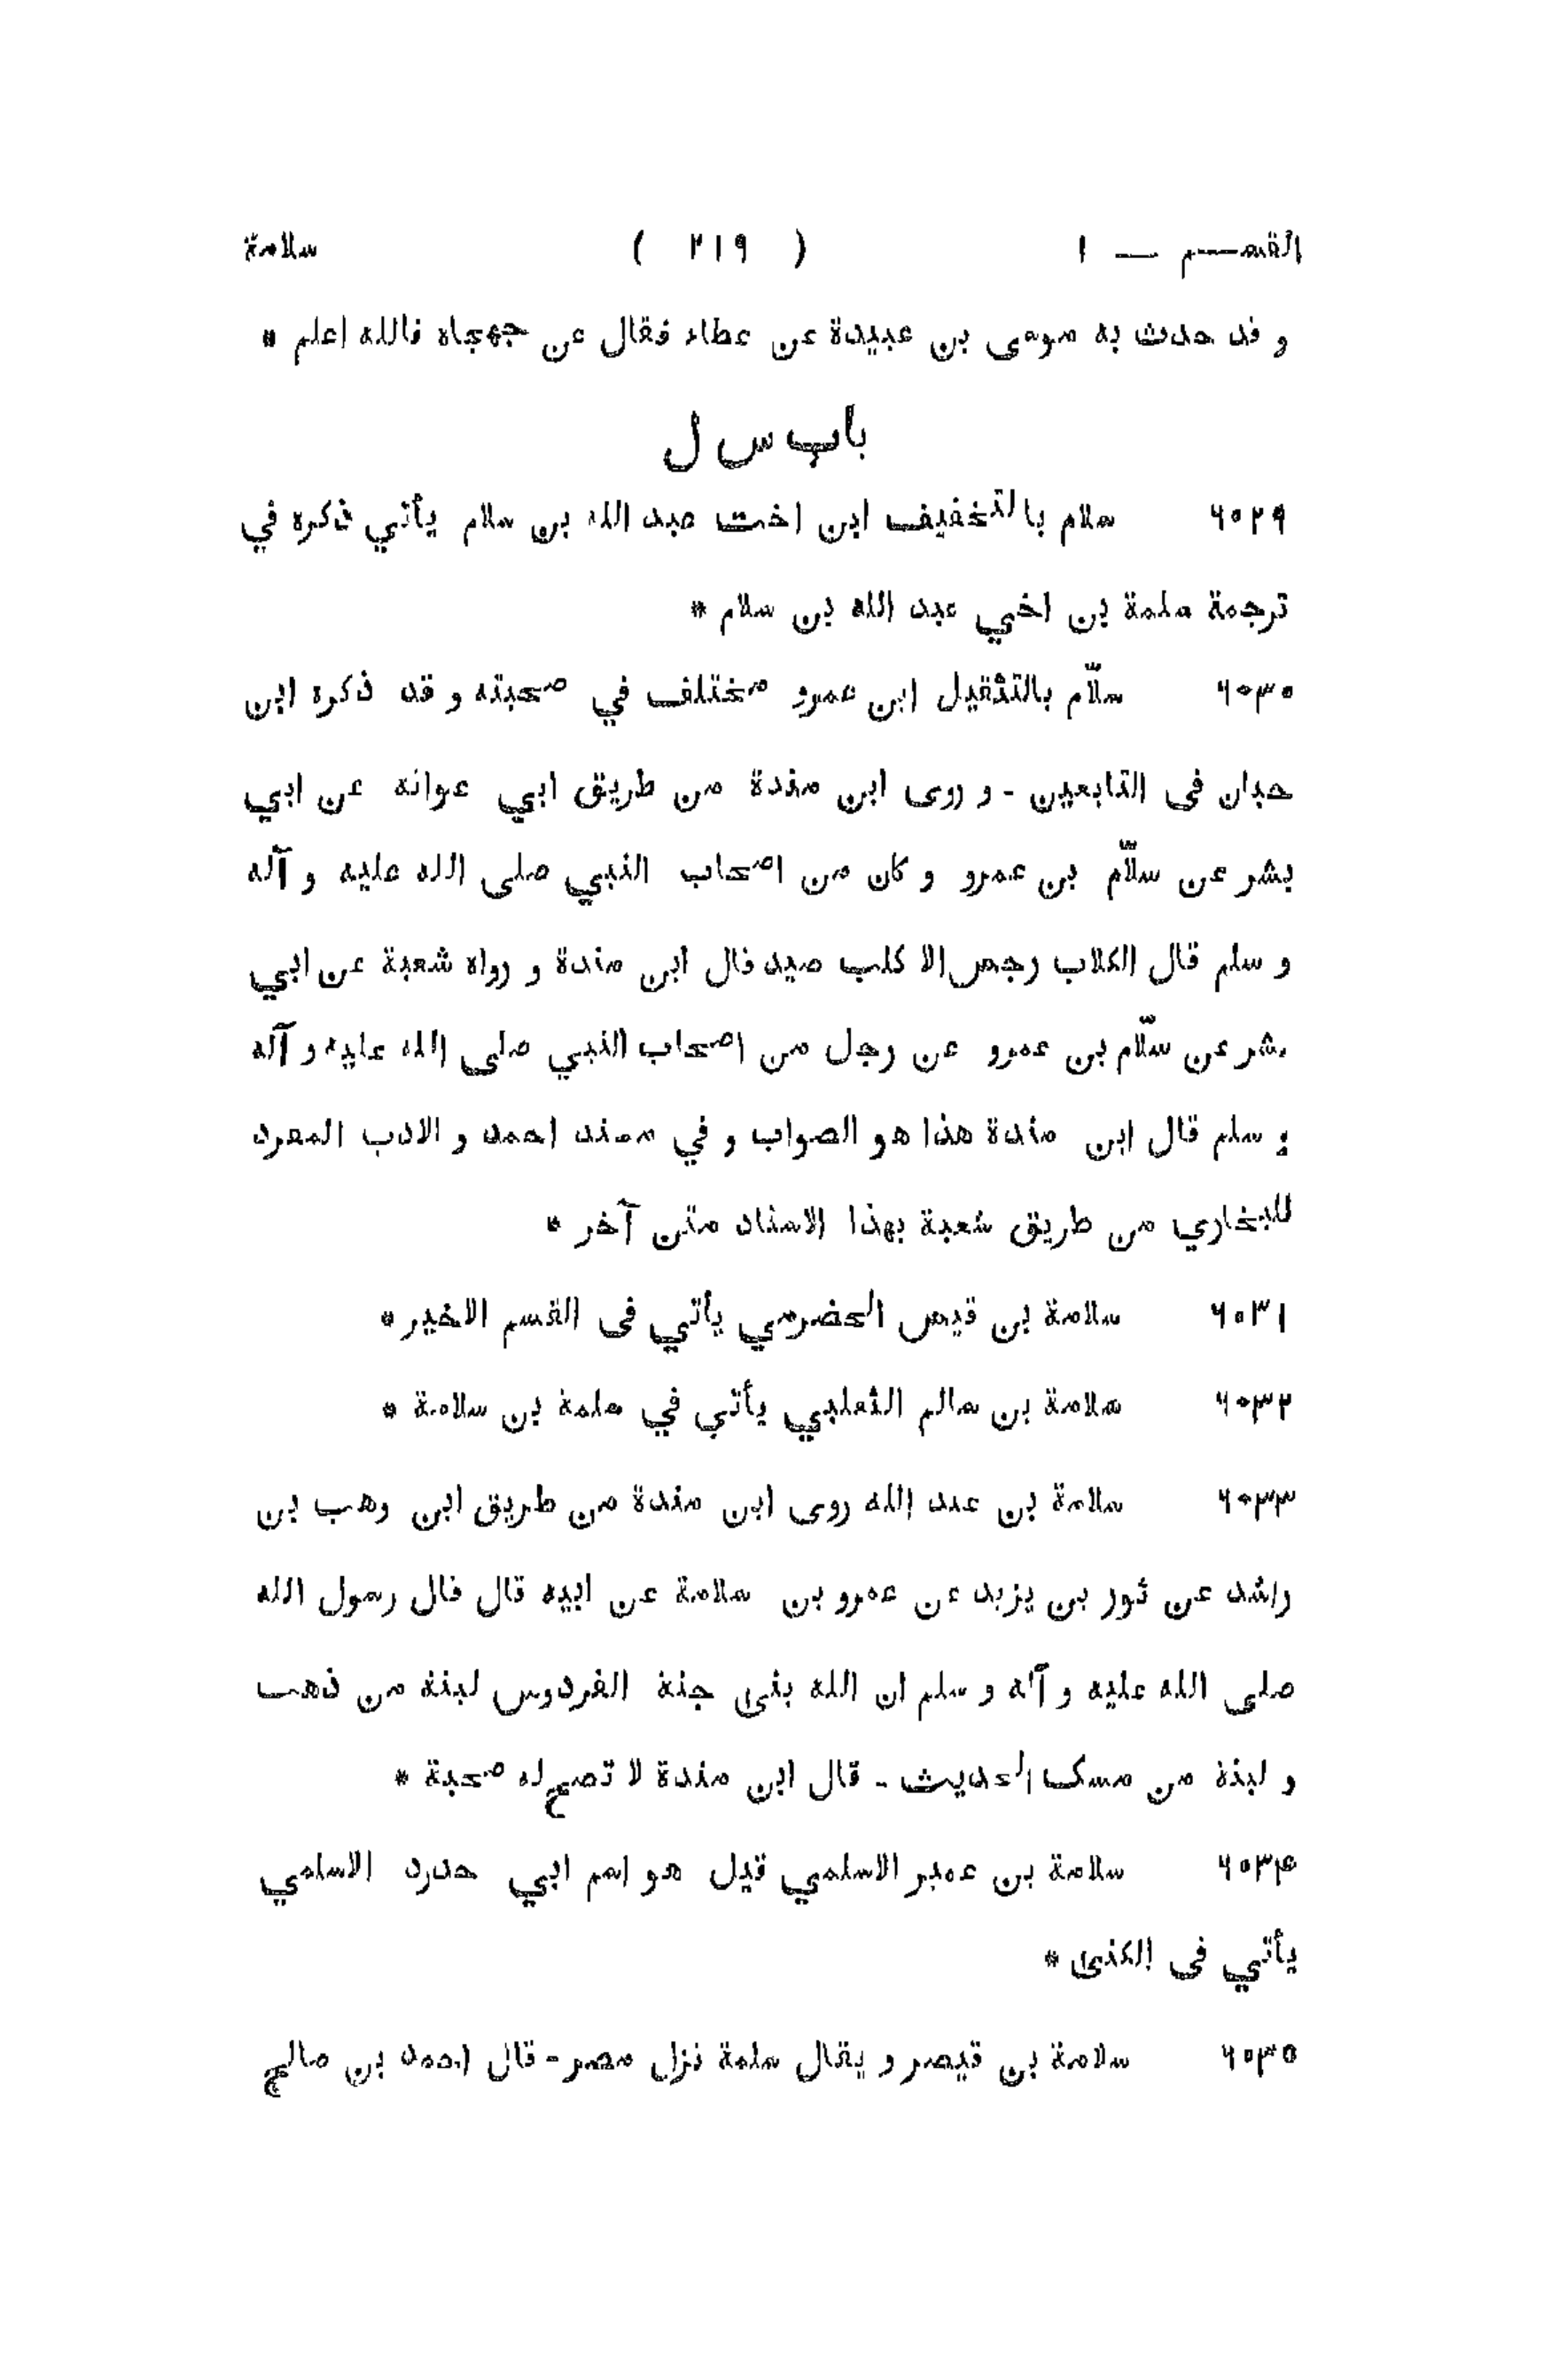 القسم — ١ ( ٢١٩ ) سلامة
و قد حدث به موسى بن عبيدة عن عطاء فقال عن جهجاه فالله اعلم *
باب س ل
٦٠٢٩ سلام بالتخفيف ابن اخت عبد الله بن سلام يأتي ذكره في
ترجمة سلمة بن اخي عبد الله بن سلام *
٦٠٣٠ سلّام بالتثقيل ابن عمرو مختلف في صحبته و قد ذكره ابن
حبان فى التابعين - و روى ابن مندة من طريق ابي عوانه عن ابي
بشر عن سلّام بن عمرو و كان من اصحاب النبي صلى الله عليه و آله
و سلم قال الكلاب رجس الا كلب صيد قال ابن مندة و رواه شعبة عن ابي
بشر عن سلّام بن عمرو عن رجل من اصحاب النبي صلى الله عليه و آله
و سلم قال ابن مندة هذا هو الصواب و في مسند احمد و الادب المفرد
للبخاري من طريق شعبة بهذا الاسناد متن آخر *
٦٠٣١ سلامة بن قيس الحضرمي يأتي فى القسم الاخير *
٦٠٣٢ سلامة بن سالم الثعلبي يأتي في سلمة بن سلامة *
٦٠٣٣ سلامة بن عبد الله روى ابن مندة من طريق ابن وهب بن
راشد عن ثور بن يزيد عن عمرو بن سلامة عن ابيه قال قال رسول الله
صلى الله عليه و آله و سلم ان الله بنى جنة الفردوس لبنة من ذهب
و لبنة من مسك الحديث - قال ابن مندة لا تصح له صحبة *
٦٠٣٤ سلامة بن عمير الاسلمي قيل هو اسم ابي حدرد الاسلمي
يأتي فى الكنى *
٦٠٣٥ سلامة بن قيصر و يقال سلمة نزل مصر - قال احمد بن صالح